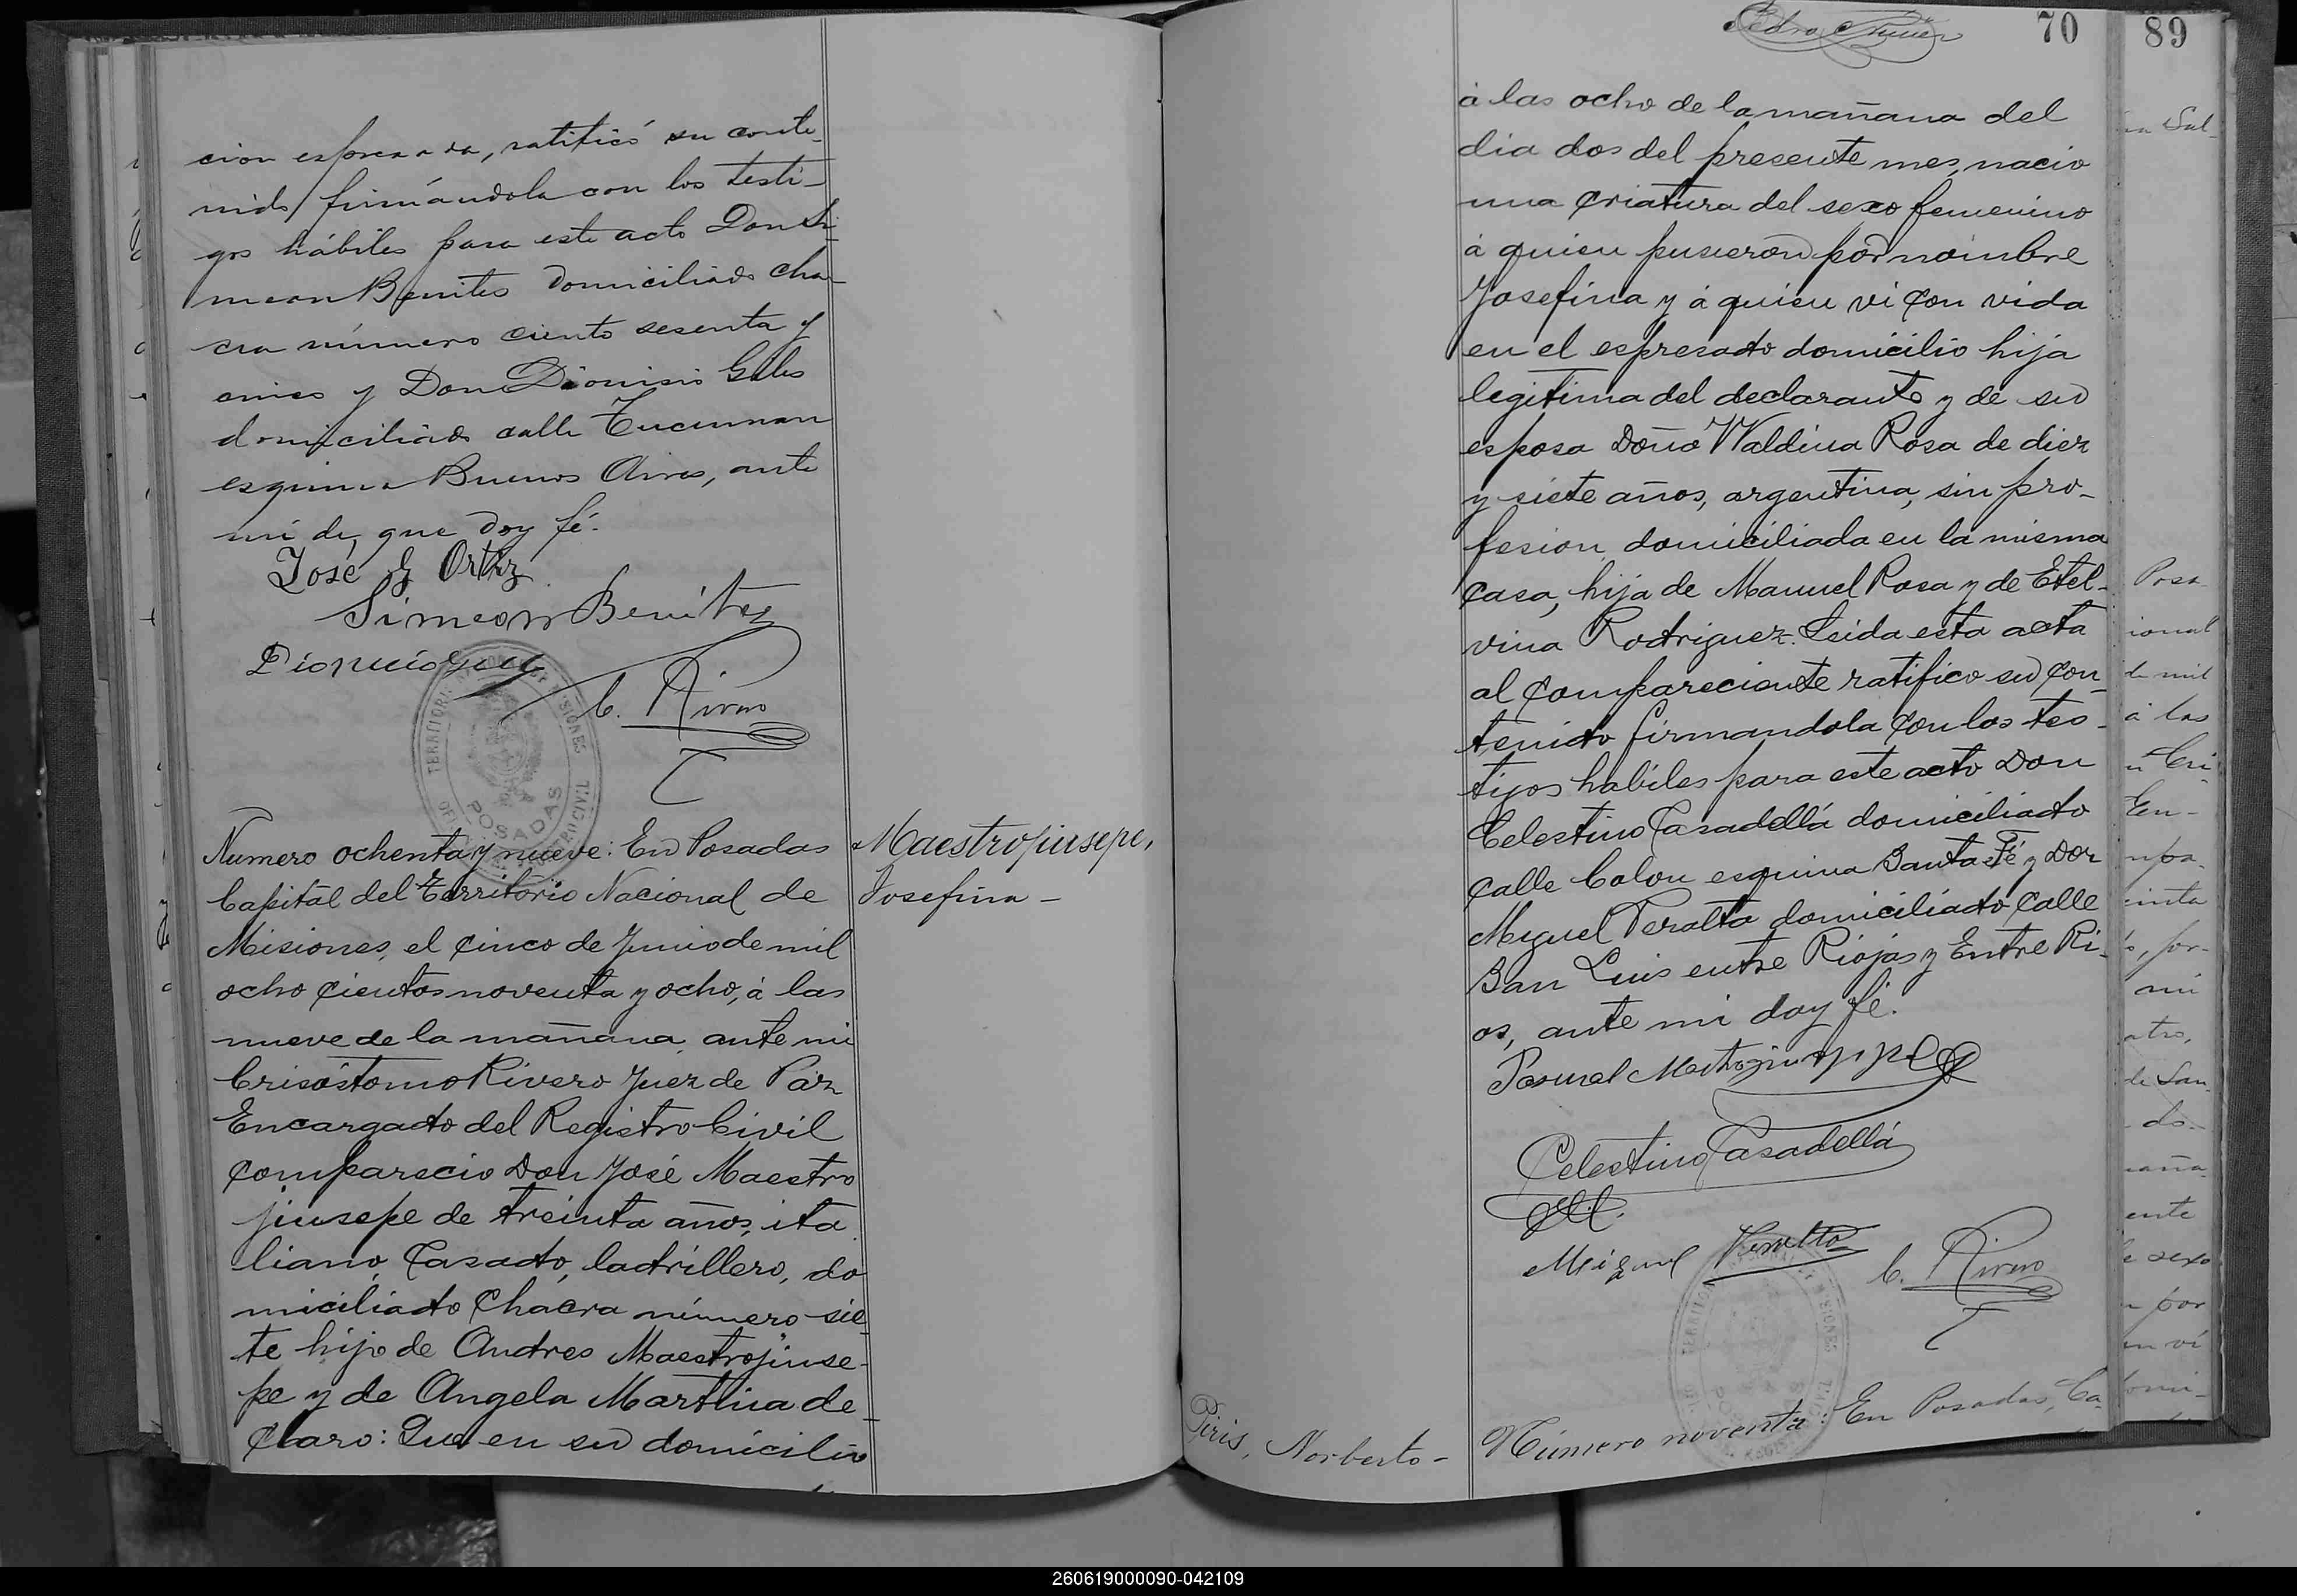 cion espresada, ratificó su conte-
nido firmándola con los testi-
gos hábiles para este acto Don Si-
meon Benites domiciliado cha-
cra número ciento sesenta y
cinco y Don Dionisio Giles
domiciliado calle Tucuman
esquina Buenos Aires, ante
mí de que doy fé.
José G Ortiz
Simeon Benitez
Dionicio
C. Rivero
TERRITORIO MISIONES
POSADAS
Numero ochenta y nueve: En Posadas
Capital del Territorio Nacional de
Misiones, el cinco de Junio de mil
ocho cientos noventa y ocho, á las
nueve de la mañana, ante mi
Crisóstomo Rivero Juez de Paz
Encargado del Registro Civil
comparecio Don José Maestro
jiusepe de treinta años, ita
liano, Casado, ladrillero, do
miciliado Chacra número sie-
te hijo de Andres Maestrojiuse-
pe y de Angela Martina de-
claro: Que en su domicilio
Maestrojiusepe,
Josefina -
Pedro Nuñez
70
á las ocho de la mañana del
dia dos del presente mes, nacio
una criatura del sexo femenino
á quien pusieron por nombre
Josefina y á quien vi con vida
en el espresado domicilio hija
legitima del declarante y de su
esposa Doña Waldina Rosa de diez
y siete años, argentina, sin pro-
fesion domiciliada en la misma
casa, hija de Manuel Rosa y de Etel-
vina Rodriguez. Leida esta acta
al compareciente ratifico su con-
tenido firmandola con los tes-
tigos habiles para este acto Don
Celestino Casadellá domiciliado
calle Colon esquina Santa Fé y Don
Miguel Peralta domiciliado calle
San Luis entre Rioja y Entre Ri-
os, ante mi doy fé.
Pascual
Celestino Casadellá
Miguel Peralta
C. Rivero
Piris, Norberto -
Número noventa: En Posadas, Ca-
89
Sal-
Posa
ional
de mil
á las
Cri
En-
mpa-
einta
s, for-
mi
atro,
de San
do-
aña
ente
e sexo
n por
en vi
domi-
260619000090-042109